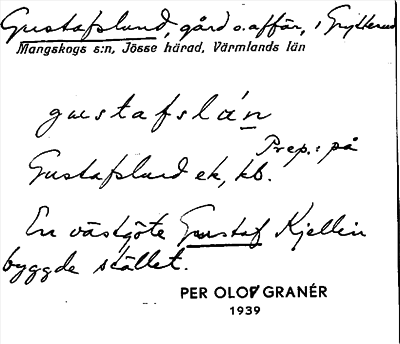 Gustafslund, gård o. affär, i Grytterud
Mangskogs s:n, Jösse härad, Värmlands län
gustafslán
Prep.: på
Gustafslund ek, kb.
En västgöte Gustaf Kjellin
byggde stället.
PER OLOF GRANÉR
1939